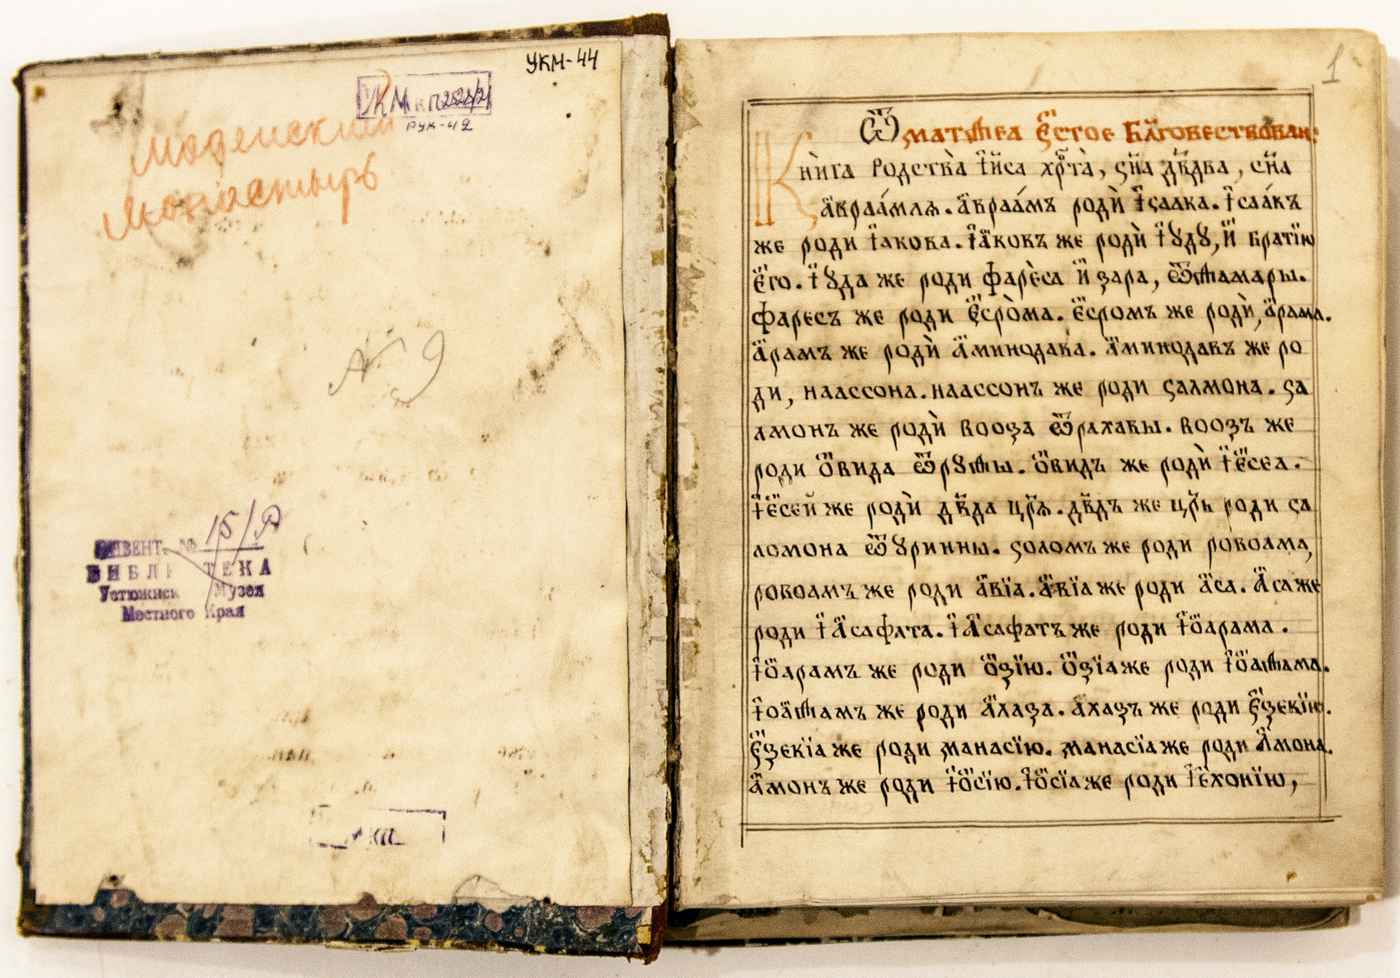 УКМ-44
УКМ
РУК-42
Моденский
монастырь
№ 9
15/Р
ИНВЕНТ. №
БИБЛИОТЕКА
Устюжнск Музея
Местного Края
КП
1
Ѿ матѳеа ст҃ое бл҃говествован:
Кни́га родства̀ і҆и҃са хр҃та̀, сн҃а дв҃два, сн҃а
а҆враа́млѧ. а҆враа́мъ родѝ і҆саака. і҆саа́къ
же роди і҆акова. і҆а҆ковъ же родѝ і҆ꙋдꙋ, и҆ братїю
є҆го. і҆ꙋда же роди фарѐса и҆ зара, ѿ ѳамары.
фаресъ же роди є҆сро̀ма. є҆сромъ же родѝ, а҆рама.
а҆рамъ же родѝ а҆минодава. а҆минодавъ же ро
ди, наассона. наассонъ же роди салмона. са
лмонъ же родѝ вооза ѿ рахавы. воозъ же
роди ѻ҆вида ѿ рꙋѳы. ѻ҆видъ же родѝ і҆є҆сеа.
і҆є҆сей же родѝ дв҃да цр҃ѧ. дв҃дъ же цр҃ь роди са
ломона ѿ ꙋринны. соломъ же роди ровоама,
ровоамъ же роди а҆вїа. а҆вїа же роди а҆са. а҆са же
роди і҆а҆сафата. і҆а҆сафатъ же роди і҆ѻ҆арама.
і҆ѻ҆арамъ же роди ѻ҆зїю. ѻ҆зїа же роди і҆ѻ҆аѳама.
і҆оа҆ѳамъ же роди а҆хаза. а҆хазъ же роди є҆зекїю.
є҆зекїа же роди манасїю. манасїа же роди а҆мона.
а҆монъ же роди і҆ѻ҆сїю. і҆ѻ҆сїа же роди і҆є҆хонїю,